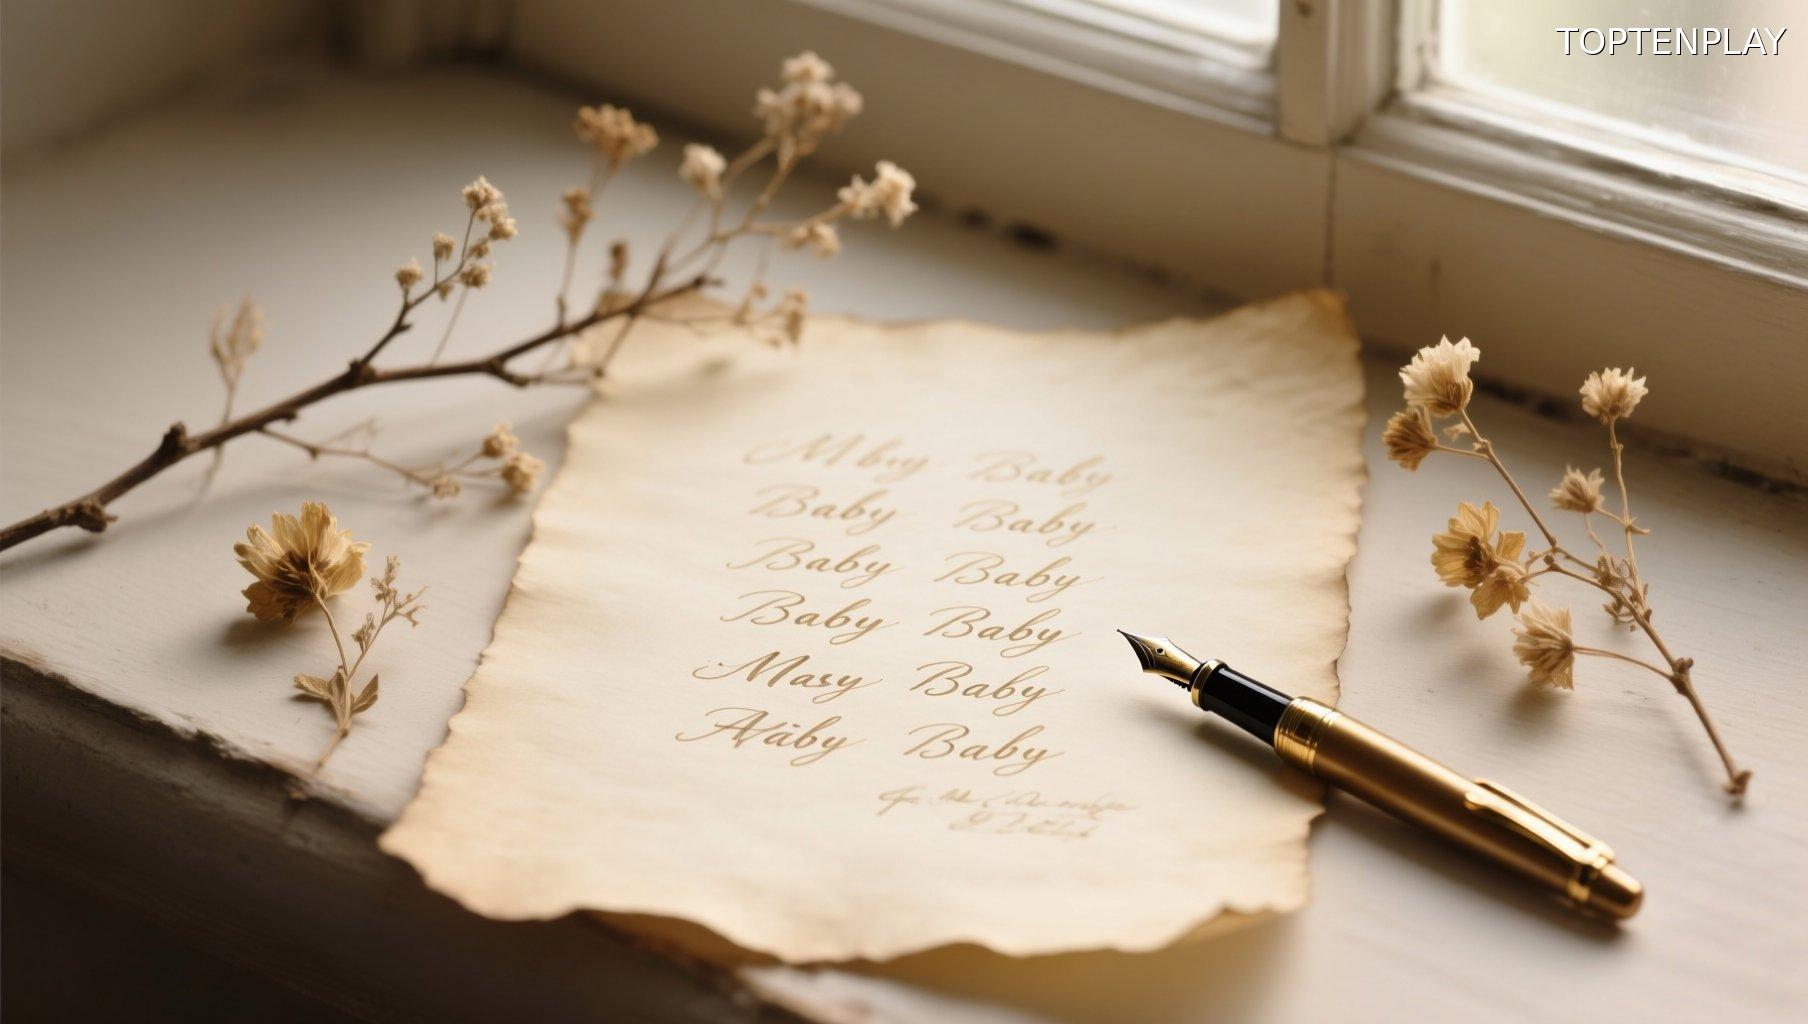 TOPTENPLAY
Baby
Baby Baby
Baby Baby
Baby Baby
Masy Baby
Baby